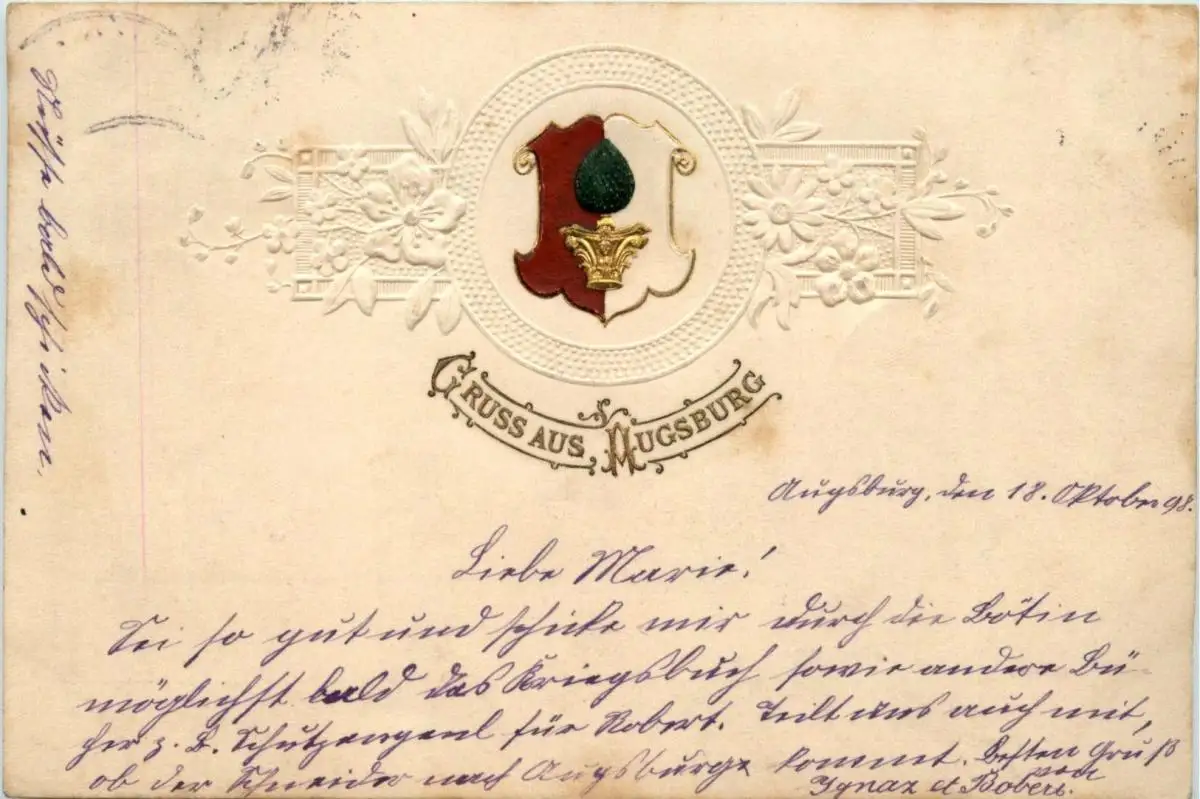 GRUSS AUS AUGSBURG
Augsburg, den 18. Oktober 98.
Liebe Marie!
Sei so gut und schicke mir durch die Bötin
möglichst bald das Kriegsbuch sowie andere Bü-
cher z. B. Schutzengerl für Robert. Teilt uns auch mit,
ob der Schneider nach Augsburg kommt. Besten Gruß
von
Ignaz et Robert.
bald